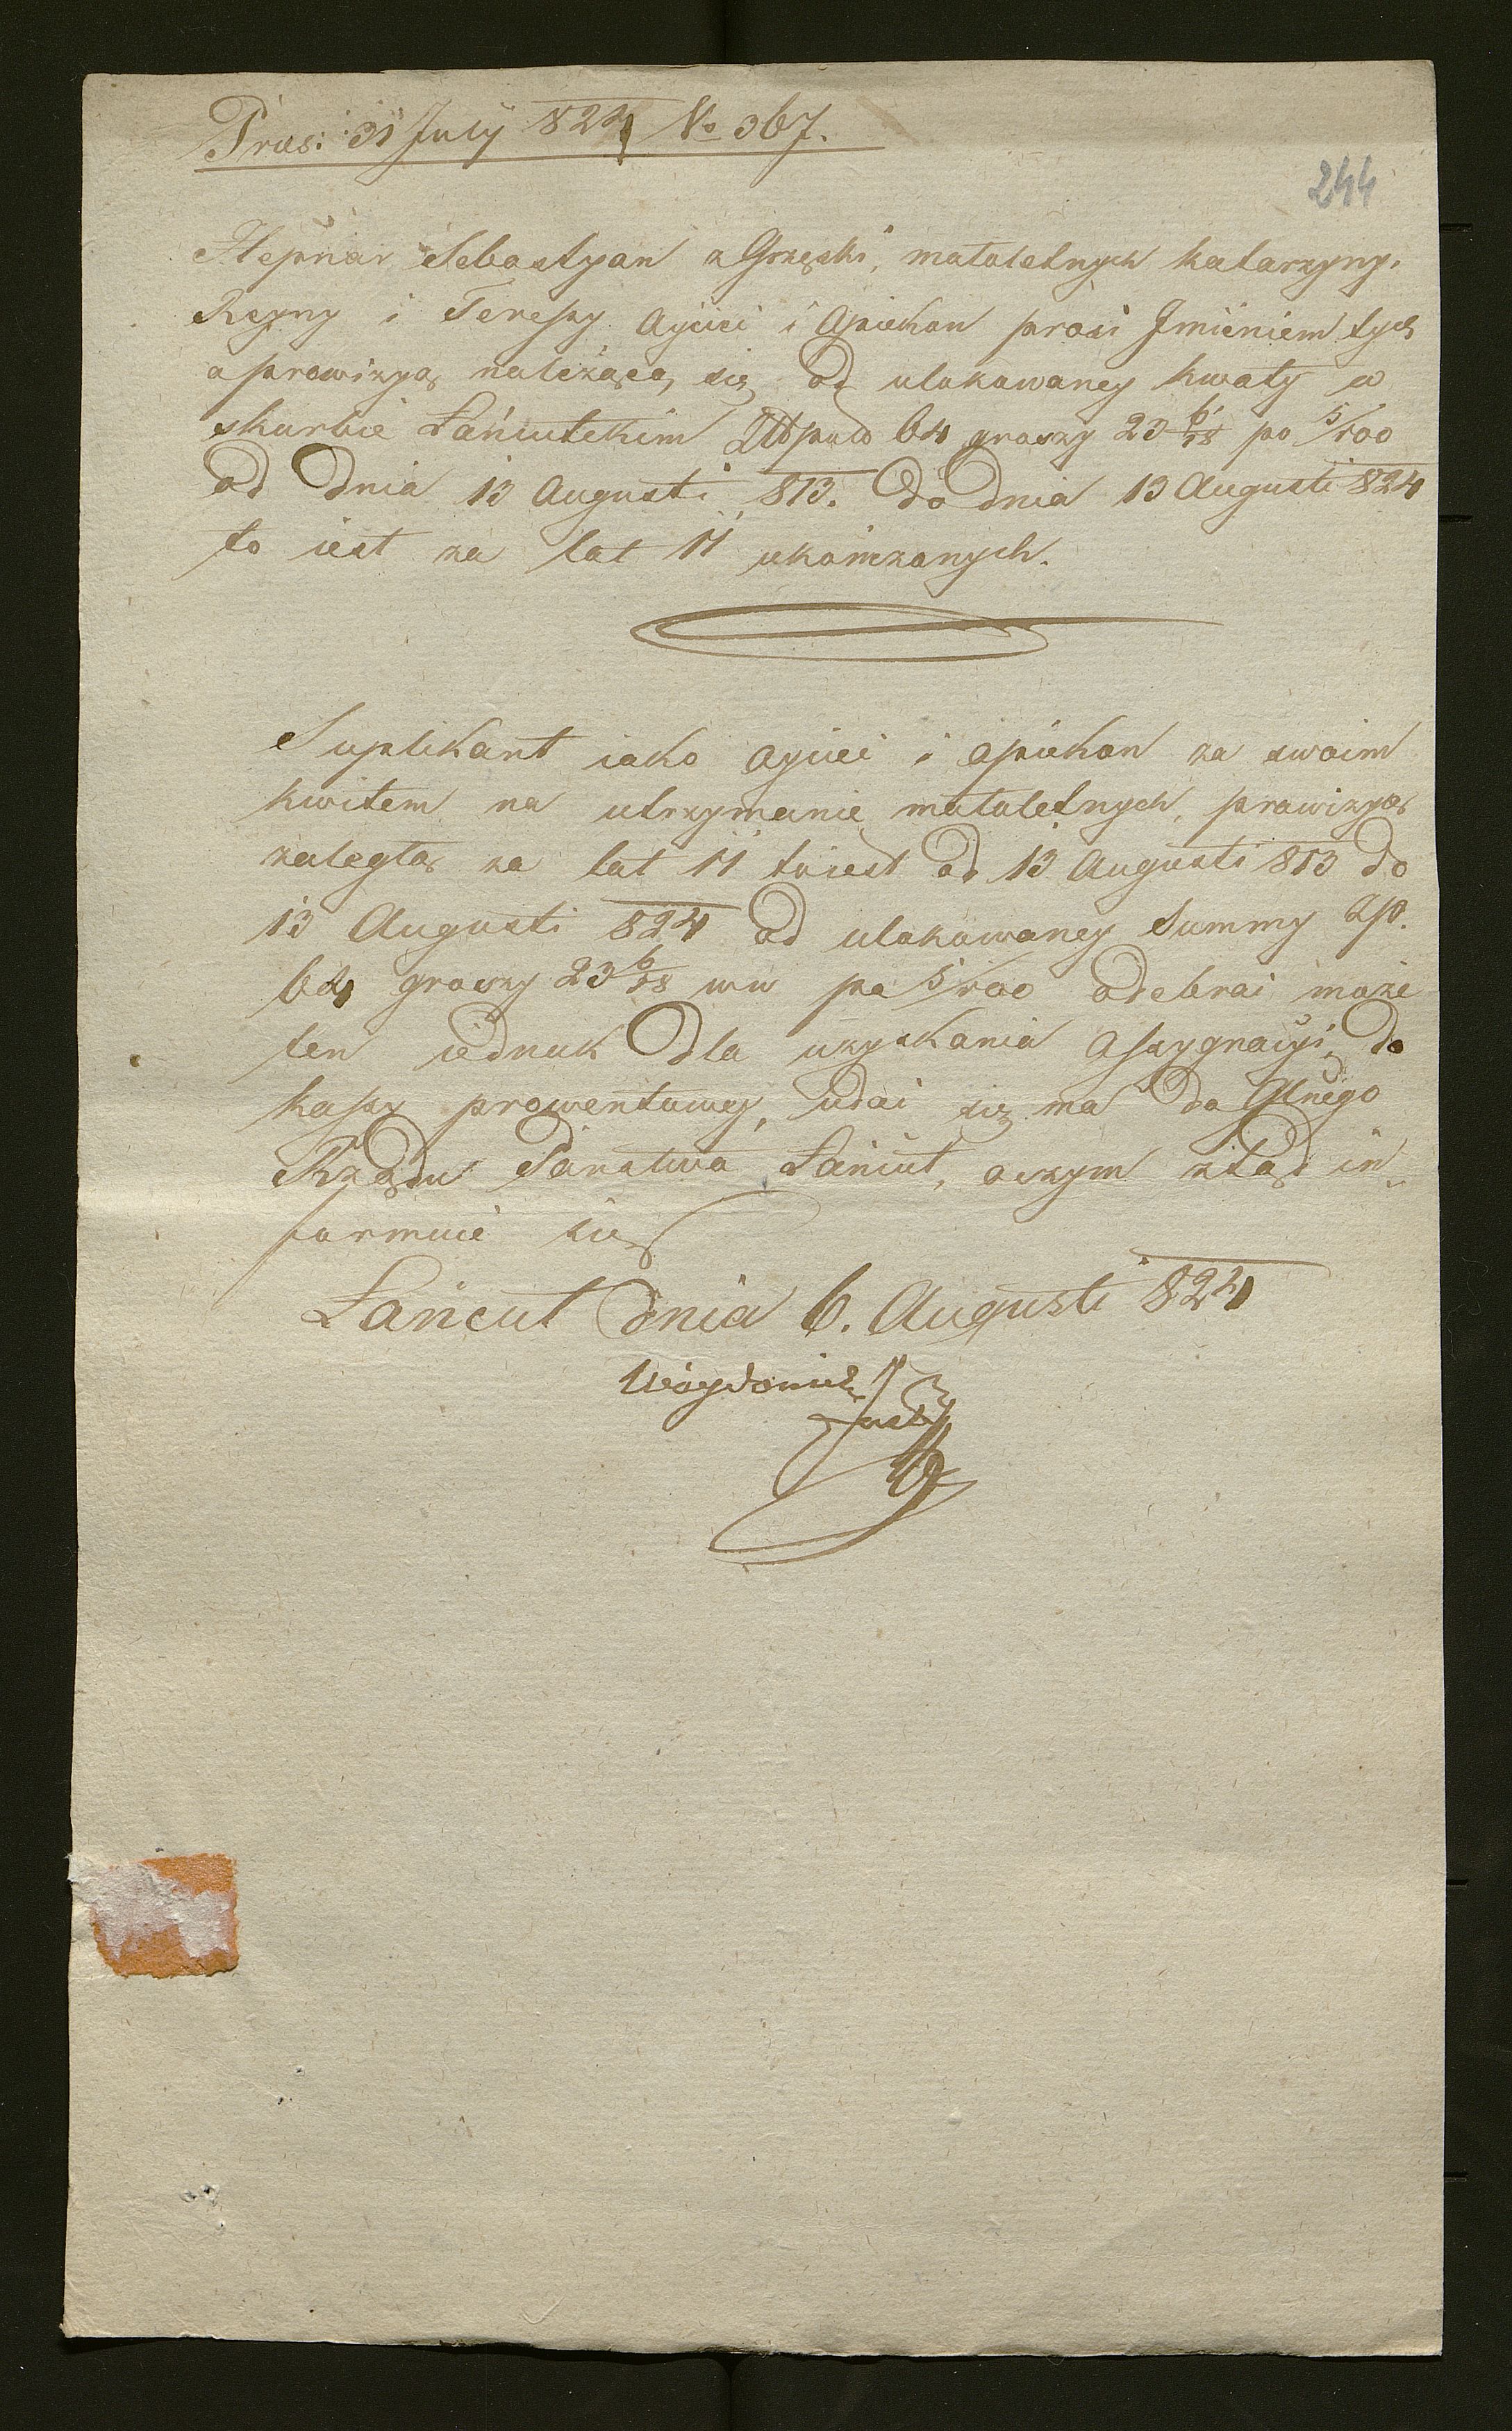 Præs: 31 July 824 No 367.
244
Hepnar Sebastyan z Grzęski, małoletnych Katarzyny,
Regyny i Tereszy Oyciec i Opiekon prosi Jmieniem tych
o prowizyą należącą się od ulokowaney kwoty w
skarbie Łańcutckim 64 groszy 23 6/18 po 5/100
od dnia 13 Augusti 813. do dnia 13 Augusti 824
to iest za lat 11 ukończonych.
Suplikant iako Oyciec i Opiekon za swoim
kwitem na utrzymanie małoletnych, prowizyą
zaległą za lat 11 toiest od 13 Augusti 813 do
13 Augusti 824 od ulokowaney Summy Zp.
64 groszy 23 6/18 ww po 5/100 odebrac może
ten iednak dla uzyskania Assygnacyi do
kassy prowentowey, udac się ma do Głnego
Rządu Panstwa Łańcut, oczym ztąd in„
formuie się
Łańcut dnia 6. Augusti 824